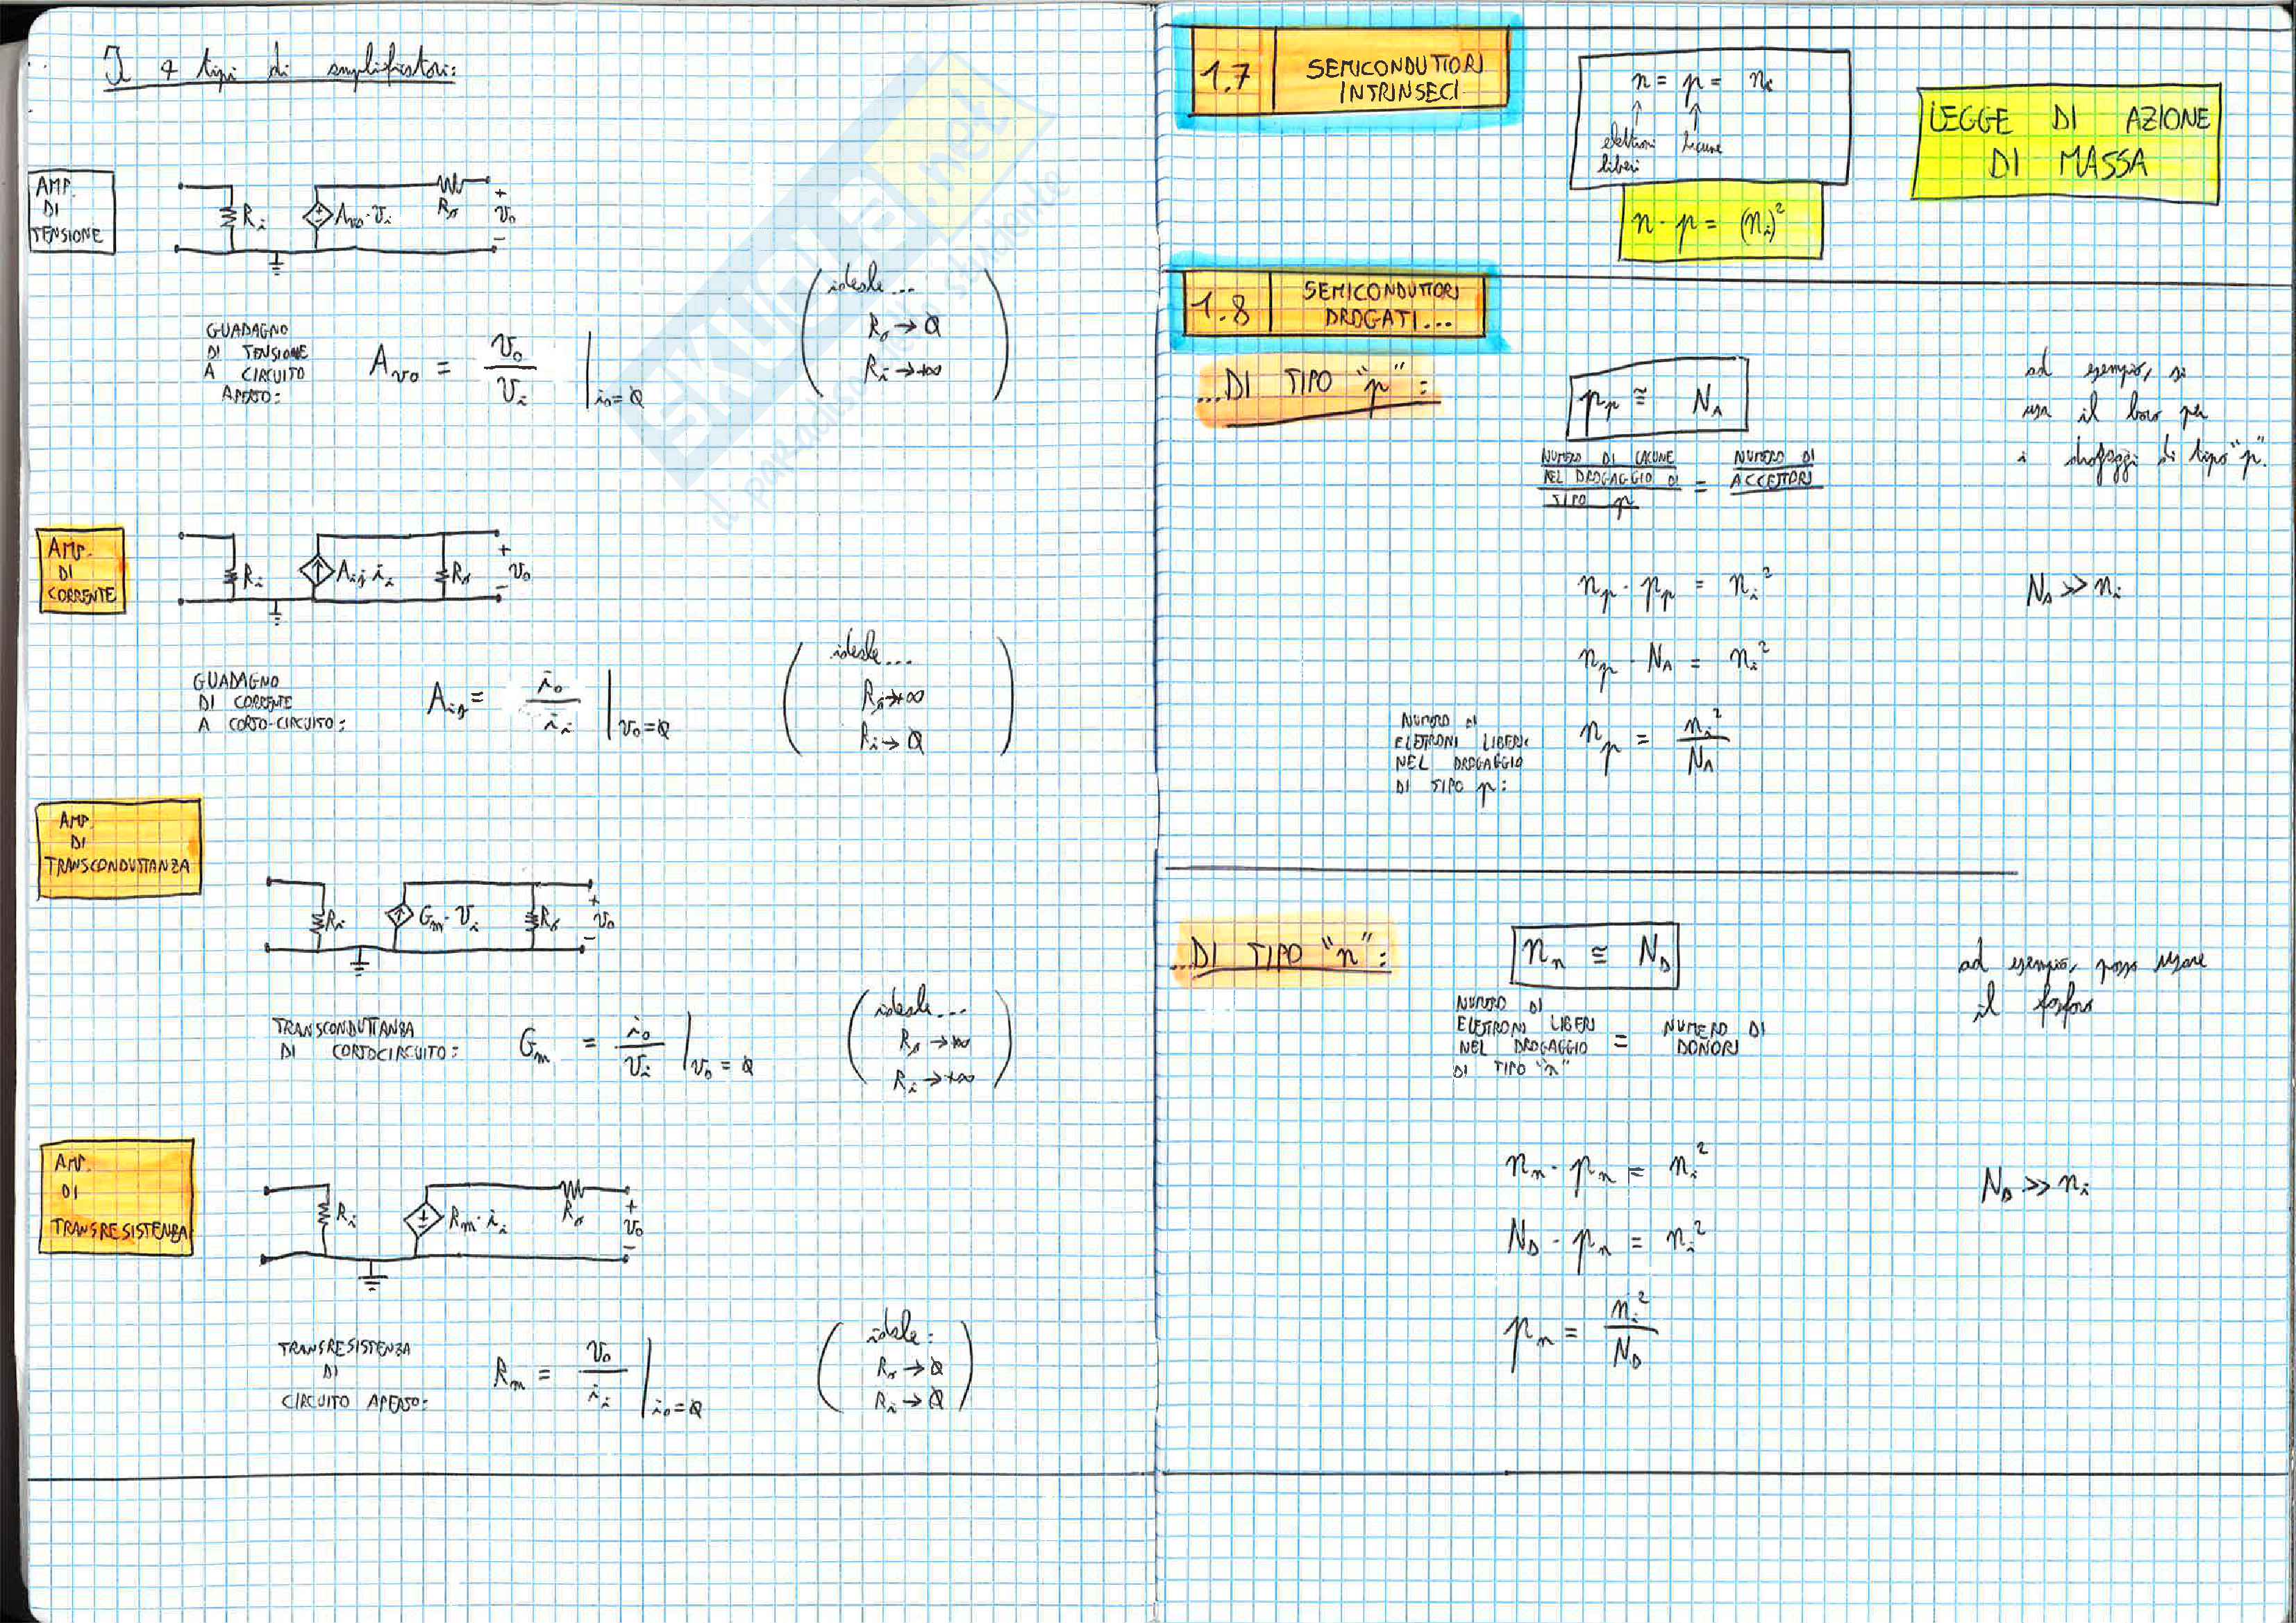 I 4 tipi di amplificatori:
AMP.
DI
TENSIONE
Ri
Avo·vi
Ro
+
vo
−
GUADAGNO
DI TENSIONE
A CIRCUITO
APERTO:
Avo = vo/vi | io=0
ideale...
Ro → 0
Ri → +∞
AMP.
DI
CORRENTE
Ri
Ais ii
Ro
+
vo
−
GUADAGNO
DI CORRENTE
A CORTO-CIRCUITO:
Ais = io/ii | vo=0
ideale...
Ro→+∞
Ri→0
AMP.
DI
TRANSCONDUTTANZA
Ri
Gm·vi
Ro
+
vo
−
TRANSCONDUTTANZA
DI CORTOCIRCUITO:
Gm = io/vi | vo = 0
ideale...
Ro → +∞
Ri → +∞
AMP.
DI
TRANSRESISTENZA
Ri
Rm·ii
Ro
+
vo
−
TRANSRESISTENZA
DI
CIRCUITO APERTO:
Rm = vo/ii | io=0
idale:
Ro → 0
Ri → 0
SKUOLA.net
il paradiso dello studente
1.7 SEMICONDUTTORI
INTRINSECI
n = p = ni
elettroni lacune
liberi
n · p = (ni)²
LEGGE DI AZIONE
DI MASSA
1.8 SEMICONDUTTORI
DROGATI...
...DI TIPO "p":
pp ≅ NA
NUMERO DI LACUNE
NEL DROGAGGIO DI
TIPO p
=
NUMERO DI
ACCETTORI
ad esempio, si
usa il boro per
i drogaggi di tipo "p".
np · pp = ni²
NA >> ni
np · NA = ni²
NUMERO DI
ELETTRONI LIBERI
NEL DROGAGGIO
DI TIPO p:
np = ni²/NA
...DI TIPO "n":
nn ≅ ND
NUMERO DI
ELETTRONI LIBERI
NEL DROGAGGIO
DI TIPO "n"
=
NUMERO DI
DONORI
ad esempio, posso usare
il fosforo
nn · pn = ni²
ND >> ni
ND · pn = ni²
pn = ni²/ND